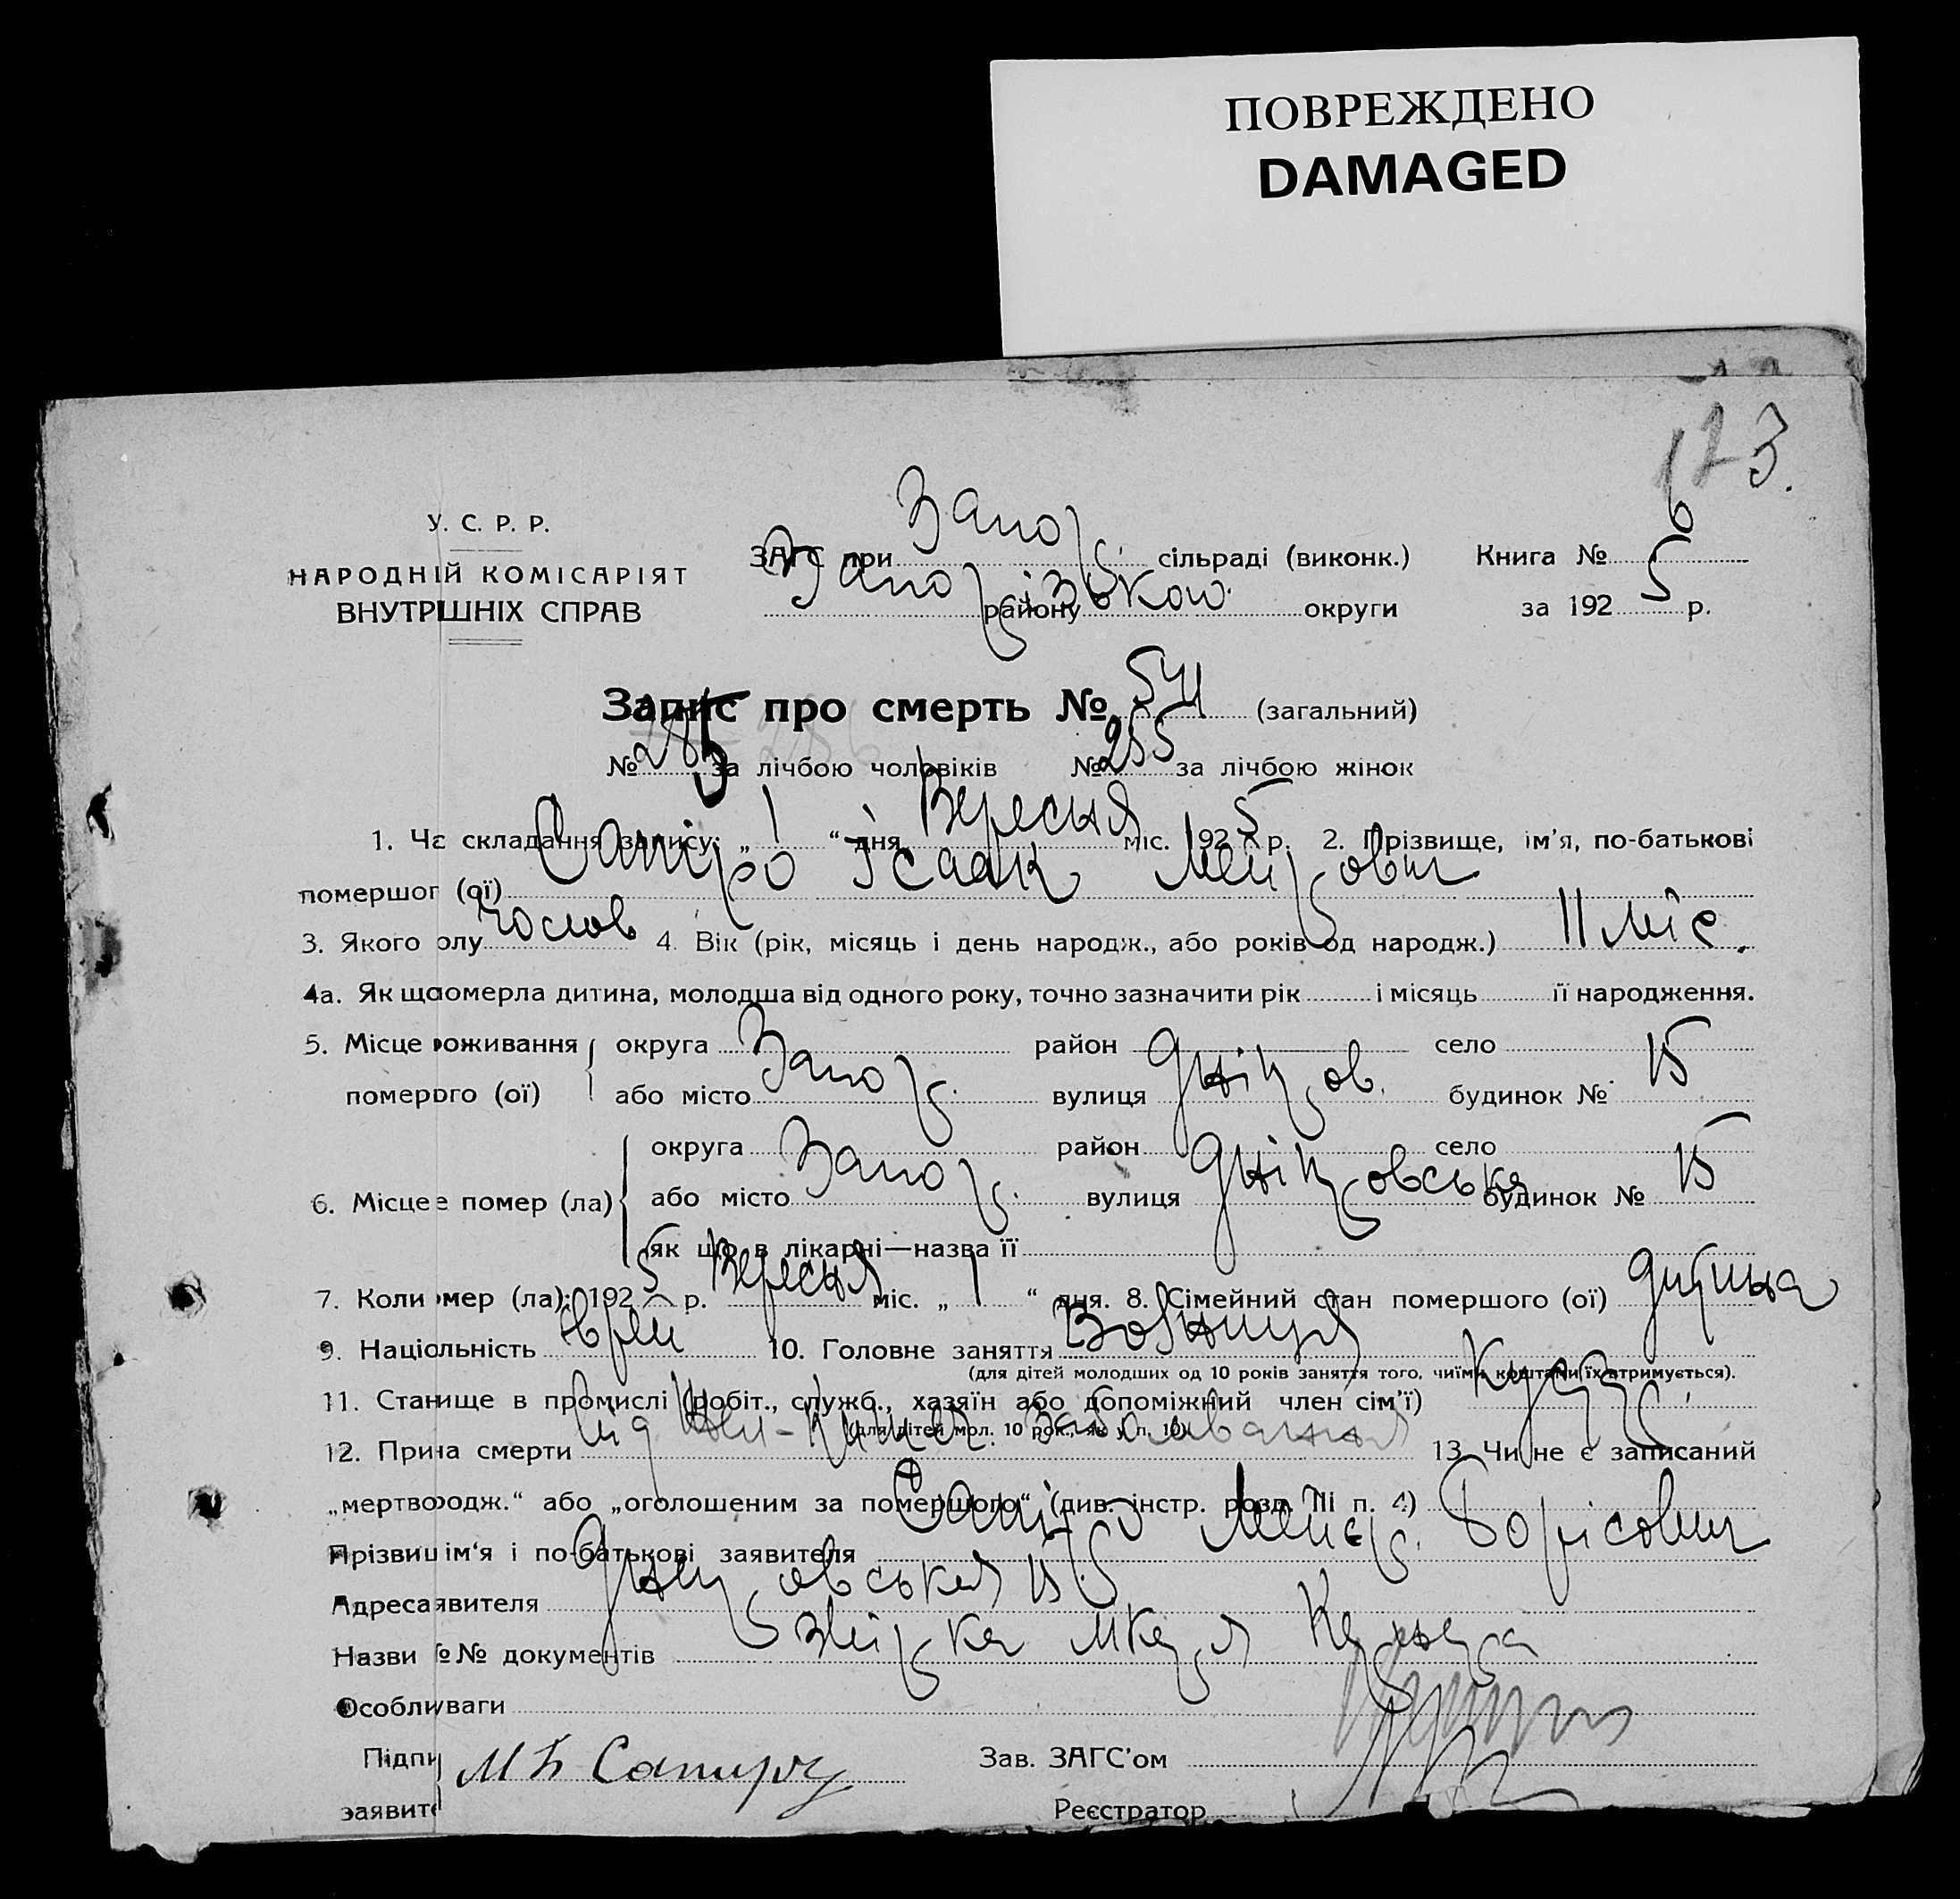 ПОВРЕЖДЕНО
DAMAGED
123.
У. С. Р. Р.
НАРОДНІЙ КОМІСАРІЯТ
ВНУТРІШНІХ СПРАВ
ЗАГС при Запор. сільраді (виконк.) Книга № 6
Запорізькой району округи за 192 5 р.
Запис про смерть № 541 (загальний)
№ 286 за лічбою чоловіків № 255 за лічбою жінок
1. Ча складання запису: „ 1 “ дня Вересня міс. 192 5 р. 2. Прізвище, ім’я, по-батькові
помершог (ої) Сапіро Ісаак Меєрович
3. Якого олу чолов 4. Вік (рік, місяць і день народж., або років од народж.) 11 міс.
4а. Як що померла дитина, молодша від одного року, точно зазначити рік і місяць її народження.
5. Місце роживання округа район село
померого (ої) або місто Запор. вулиця Дніпров. будинок № 15
округа район село
6. Місце е помер (ла) або місто Запор. вулиця Дніпровська будинок № 15
як що в лікарні—назва її
7. Коли омер (ла): 192 5 р. Вересня міс. „ 1 “ дня. 8. Сімейний стан помершого (ої) дитина
9. Національність єврей 10. Головне заняття
(для дітей молодших од 10 років заняття того, чиїми коштами їх утримується).
11. Станище в промислі (робіт., служб., хазяїн або допоміжний член сім’ї)
(для дітей мол. 10 рок., як у п. 10)
12. Прина смерти від 13. Чи не є записаний
„мертвородж.“ або „оголошеним за помершого“ (див. інстр. розд. III п. 4)
Прізвиш ім‘я і по-батькові заявителя Сапіро Меєр. Борісович
Адреса явителя Дніпровська 15
Назви № № документів
Особли уваги
Підпи М Б Сапиро Зав. ЗАГС’ом
заявите Реєстратор